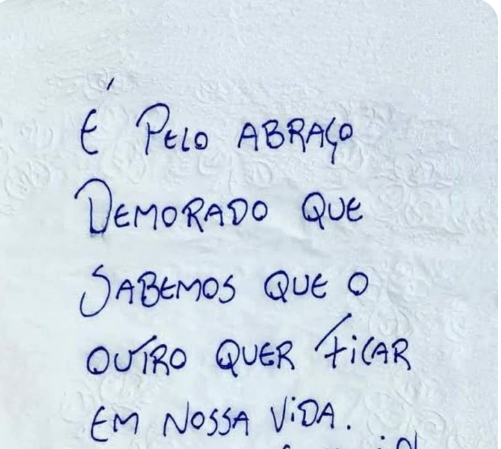 É PELO ABRAÇO
DEMORADO QUE
SABEMOS QUE O
OUTRO QUER FICAR
EM NOSSA VIDA.